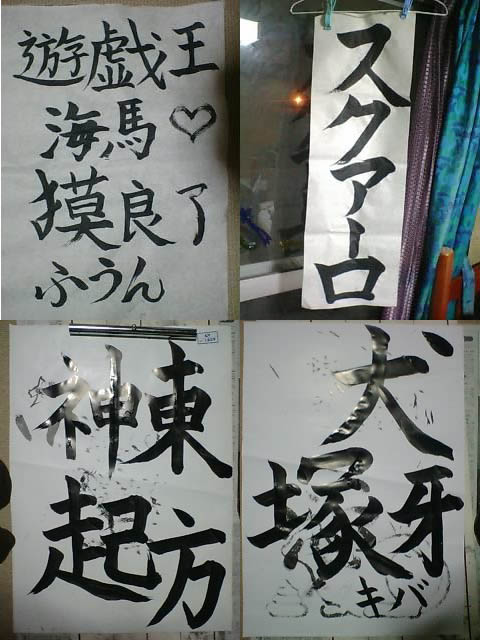 遊戯王
海馬♡
獏良了
ふうん
スクァーロ
東方
神起
犬塚
牙
キバ